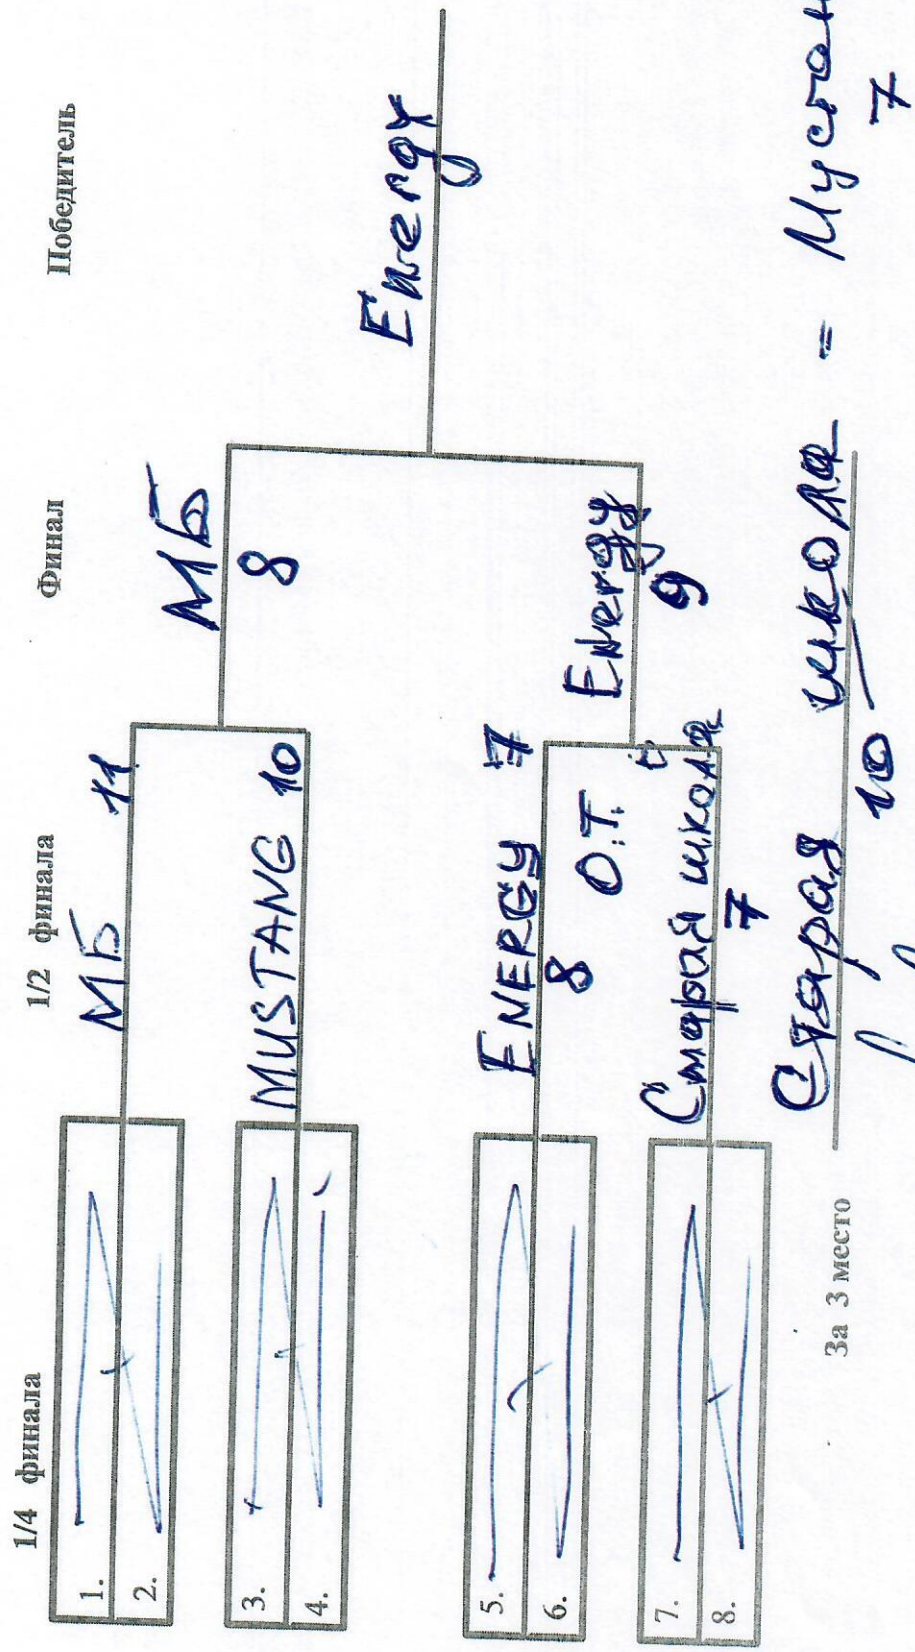 1/4 финала 1/2 финала Финал Победитель
1.
2.
МБ 11
3.
4.
MUSTANG 10
МБ
8
5.
6.
ENERGY 7
8 О.Т.
7.
8.
Старая школа
7
Energy
9
Energy
За 3 место Старая школа = Мустан
10 7